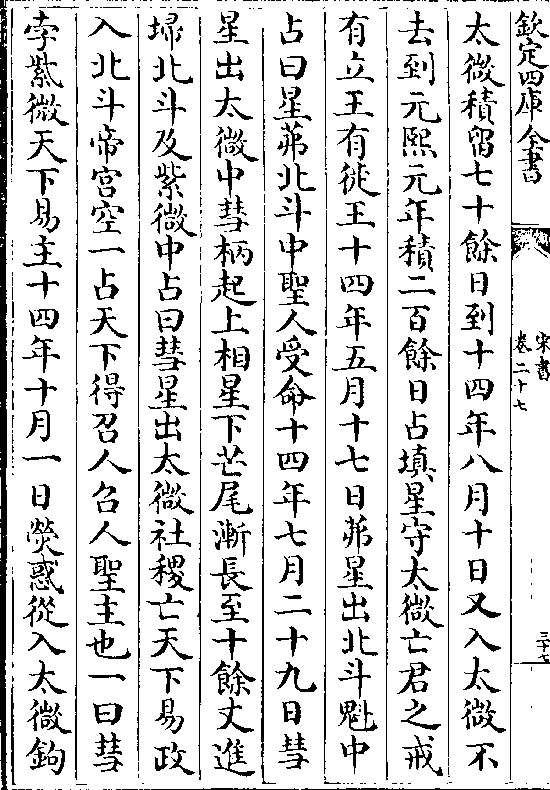 欽定四庫全書
宋書
卷二十七
三十七
太微積留七十餘日到十四年八月十日又入太微不
去到元熙元年積二百餘日占填星守太微亡君之戒
有立王有徙王十四年五月十七日茀星出北斗魁中
占曰星茀北斗中聖人受命十四年七月二十九日彗
星出太微中彗柄起上相星下芒尾漸長至十餘丈進
埽北斗及紫微中占曰彗星出太微社稷亡天下易政
入北斗帝宮空一占天下得召人召人聖主也一曰彗
孛紫微天下易主十四年十月一日熒惑從入太微鉤